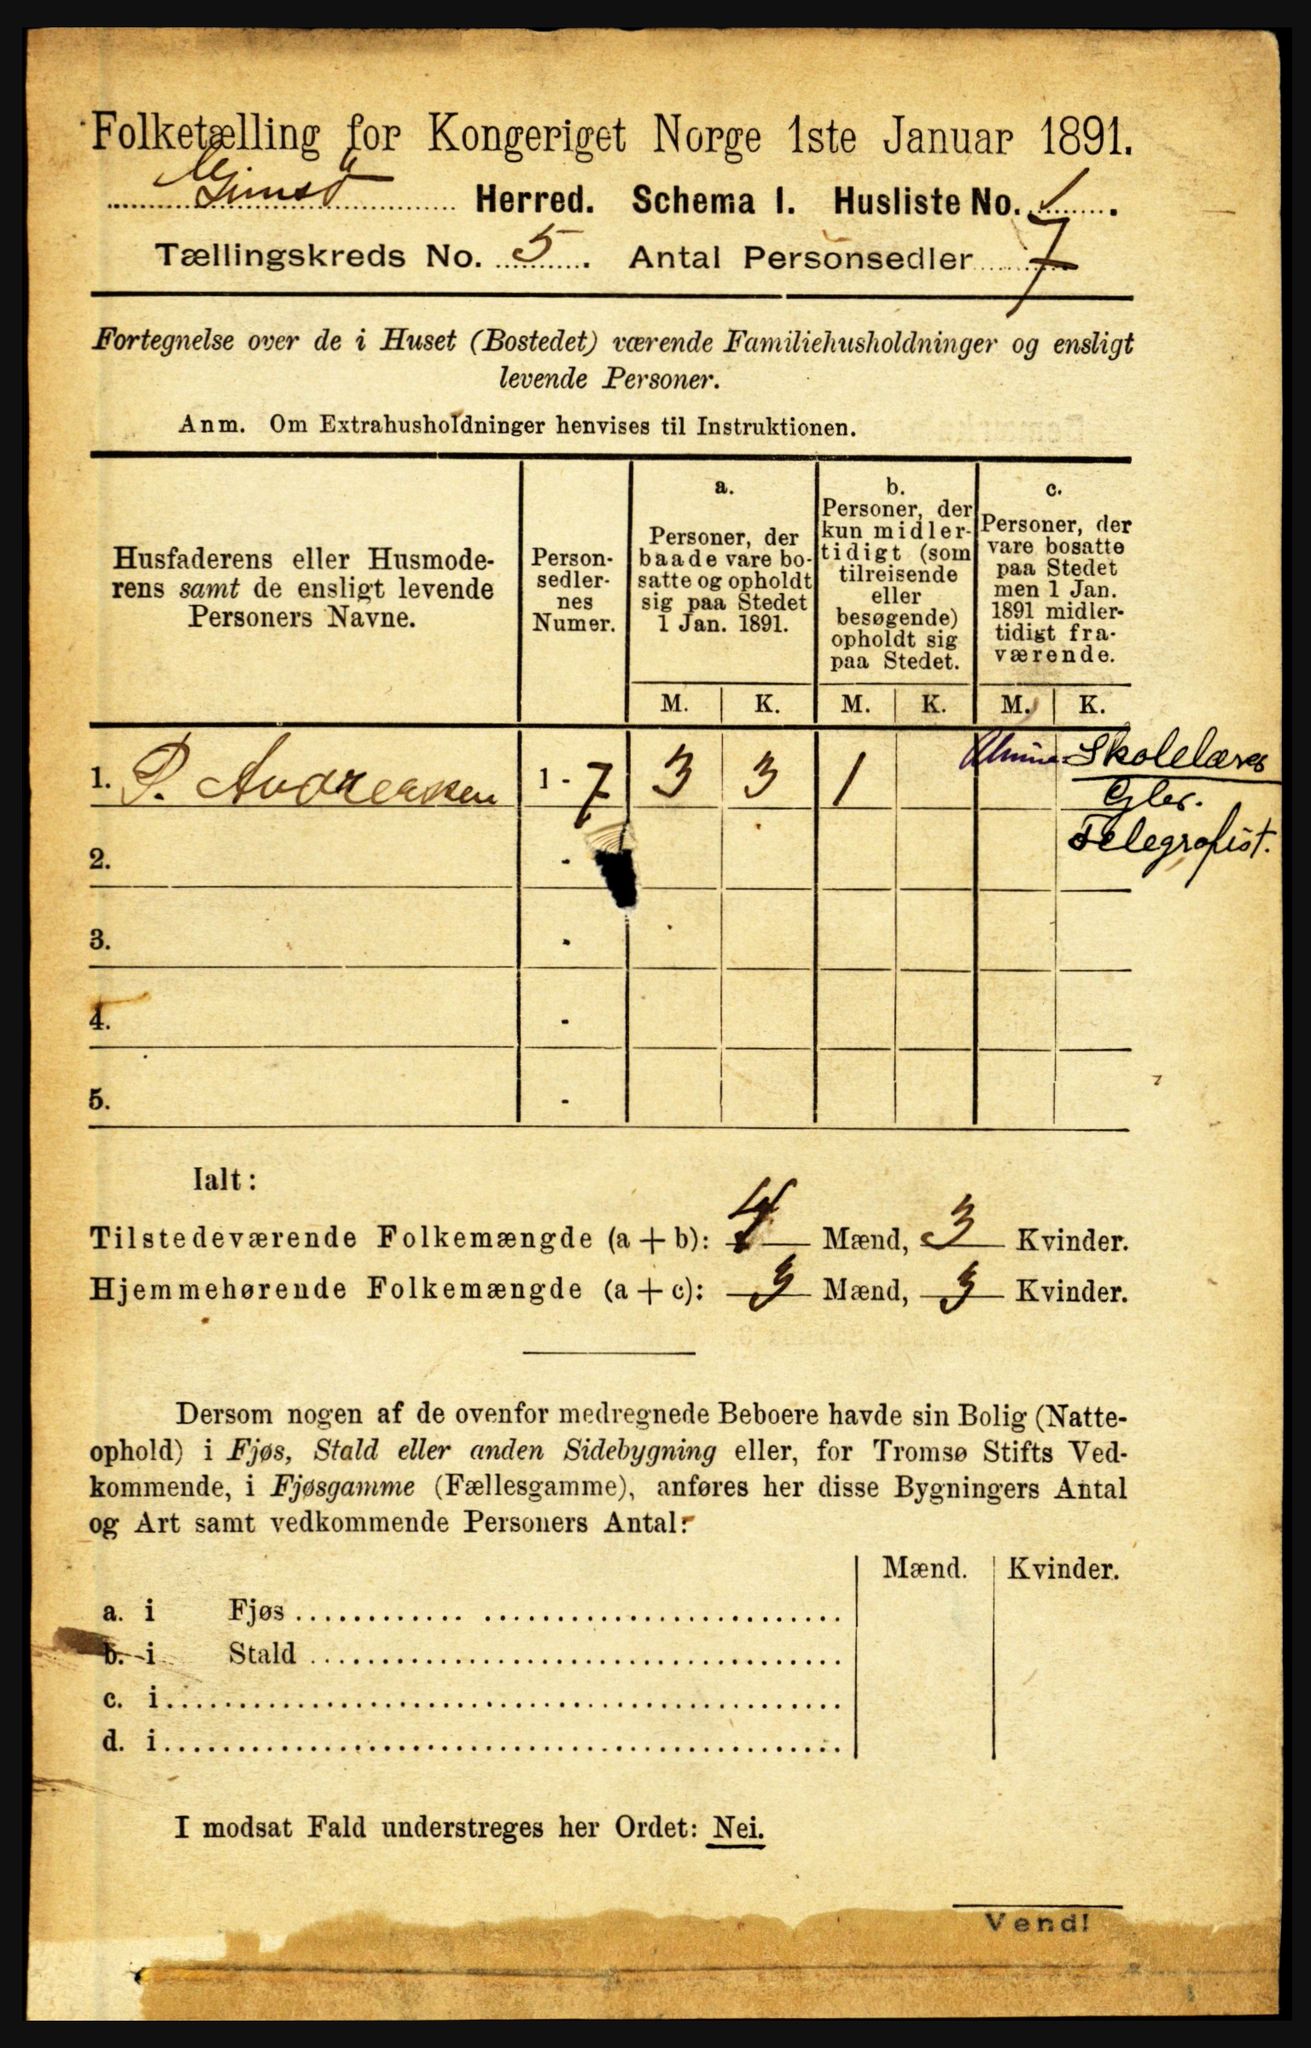 Folketælling for Kongeriget Norge 1ste Januar 1891.
Gimsø Herred. Schema I. Husliste No. 1.
Tællingskreds No. 5. Antal Personsedler 7
Fortegnelse over de i Huset (Bostedet) værende Familiehusholdninger og ensligt
levende Personer.
Anm. Om Extrahusholdninger henvises til Instruktionen.
Husfaderens eller Husmode-
rens samt de ensligt levende
Personers Navne.
Person-
sedler-
nes
Numer.
a.
Personer, der
baade vare bo-
satte og opholdt
sig paa Stedet
1 Jan. 1891.
b.
Personer, der
kun midler-
tidigt (som
tilreisende
eller
besøgende)
opholdt sig
paa Stedet.
c.
Personer, der
vare bosatte
paa Stedet
men 1 Jan.
1891 midler-
tidigt fra-
værende.
M. K. M. K. M. K.
1. P. Andreasen 1 - 7 3 3 1 Skolelærer
Gbr.
Telegrafist.
2. -
3. -
4. -
5. -
Ialt:
Tilstedeværende Folkemængde (a + b): 4 Mænd, 3 Kvinder.
Hjemmehørende Folkemængde (a + c): 3 Mænd, 3 Kvinder.
Dersom nogen af de ovenfor medregnede Beboere havde sin Bolig (Natte-
ophold) i Fjøs, Stald eller anden Sidebygning eller, for Tromsø Stifts Ved-
kommende, i Fjøsgamme (Fællesgamme), anføres her disse Bygningers Antal
og Art samt vedkommende Personers Antal:
Mænd. Kvinder.
a. i Fjøs
b. i Stald
c. i
d. i
I modsat Fald understreges her Ordet: Nei.
Vend!